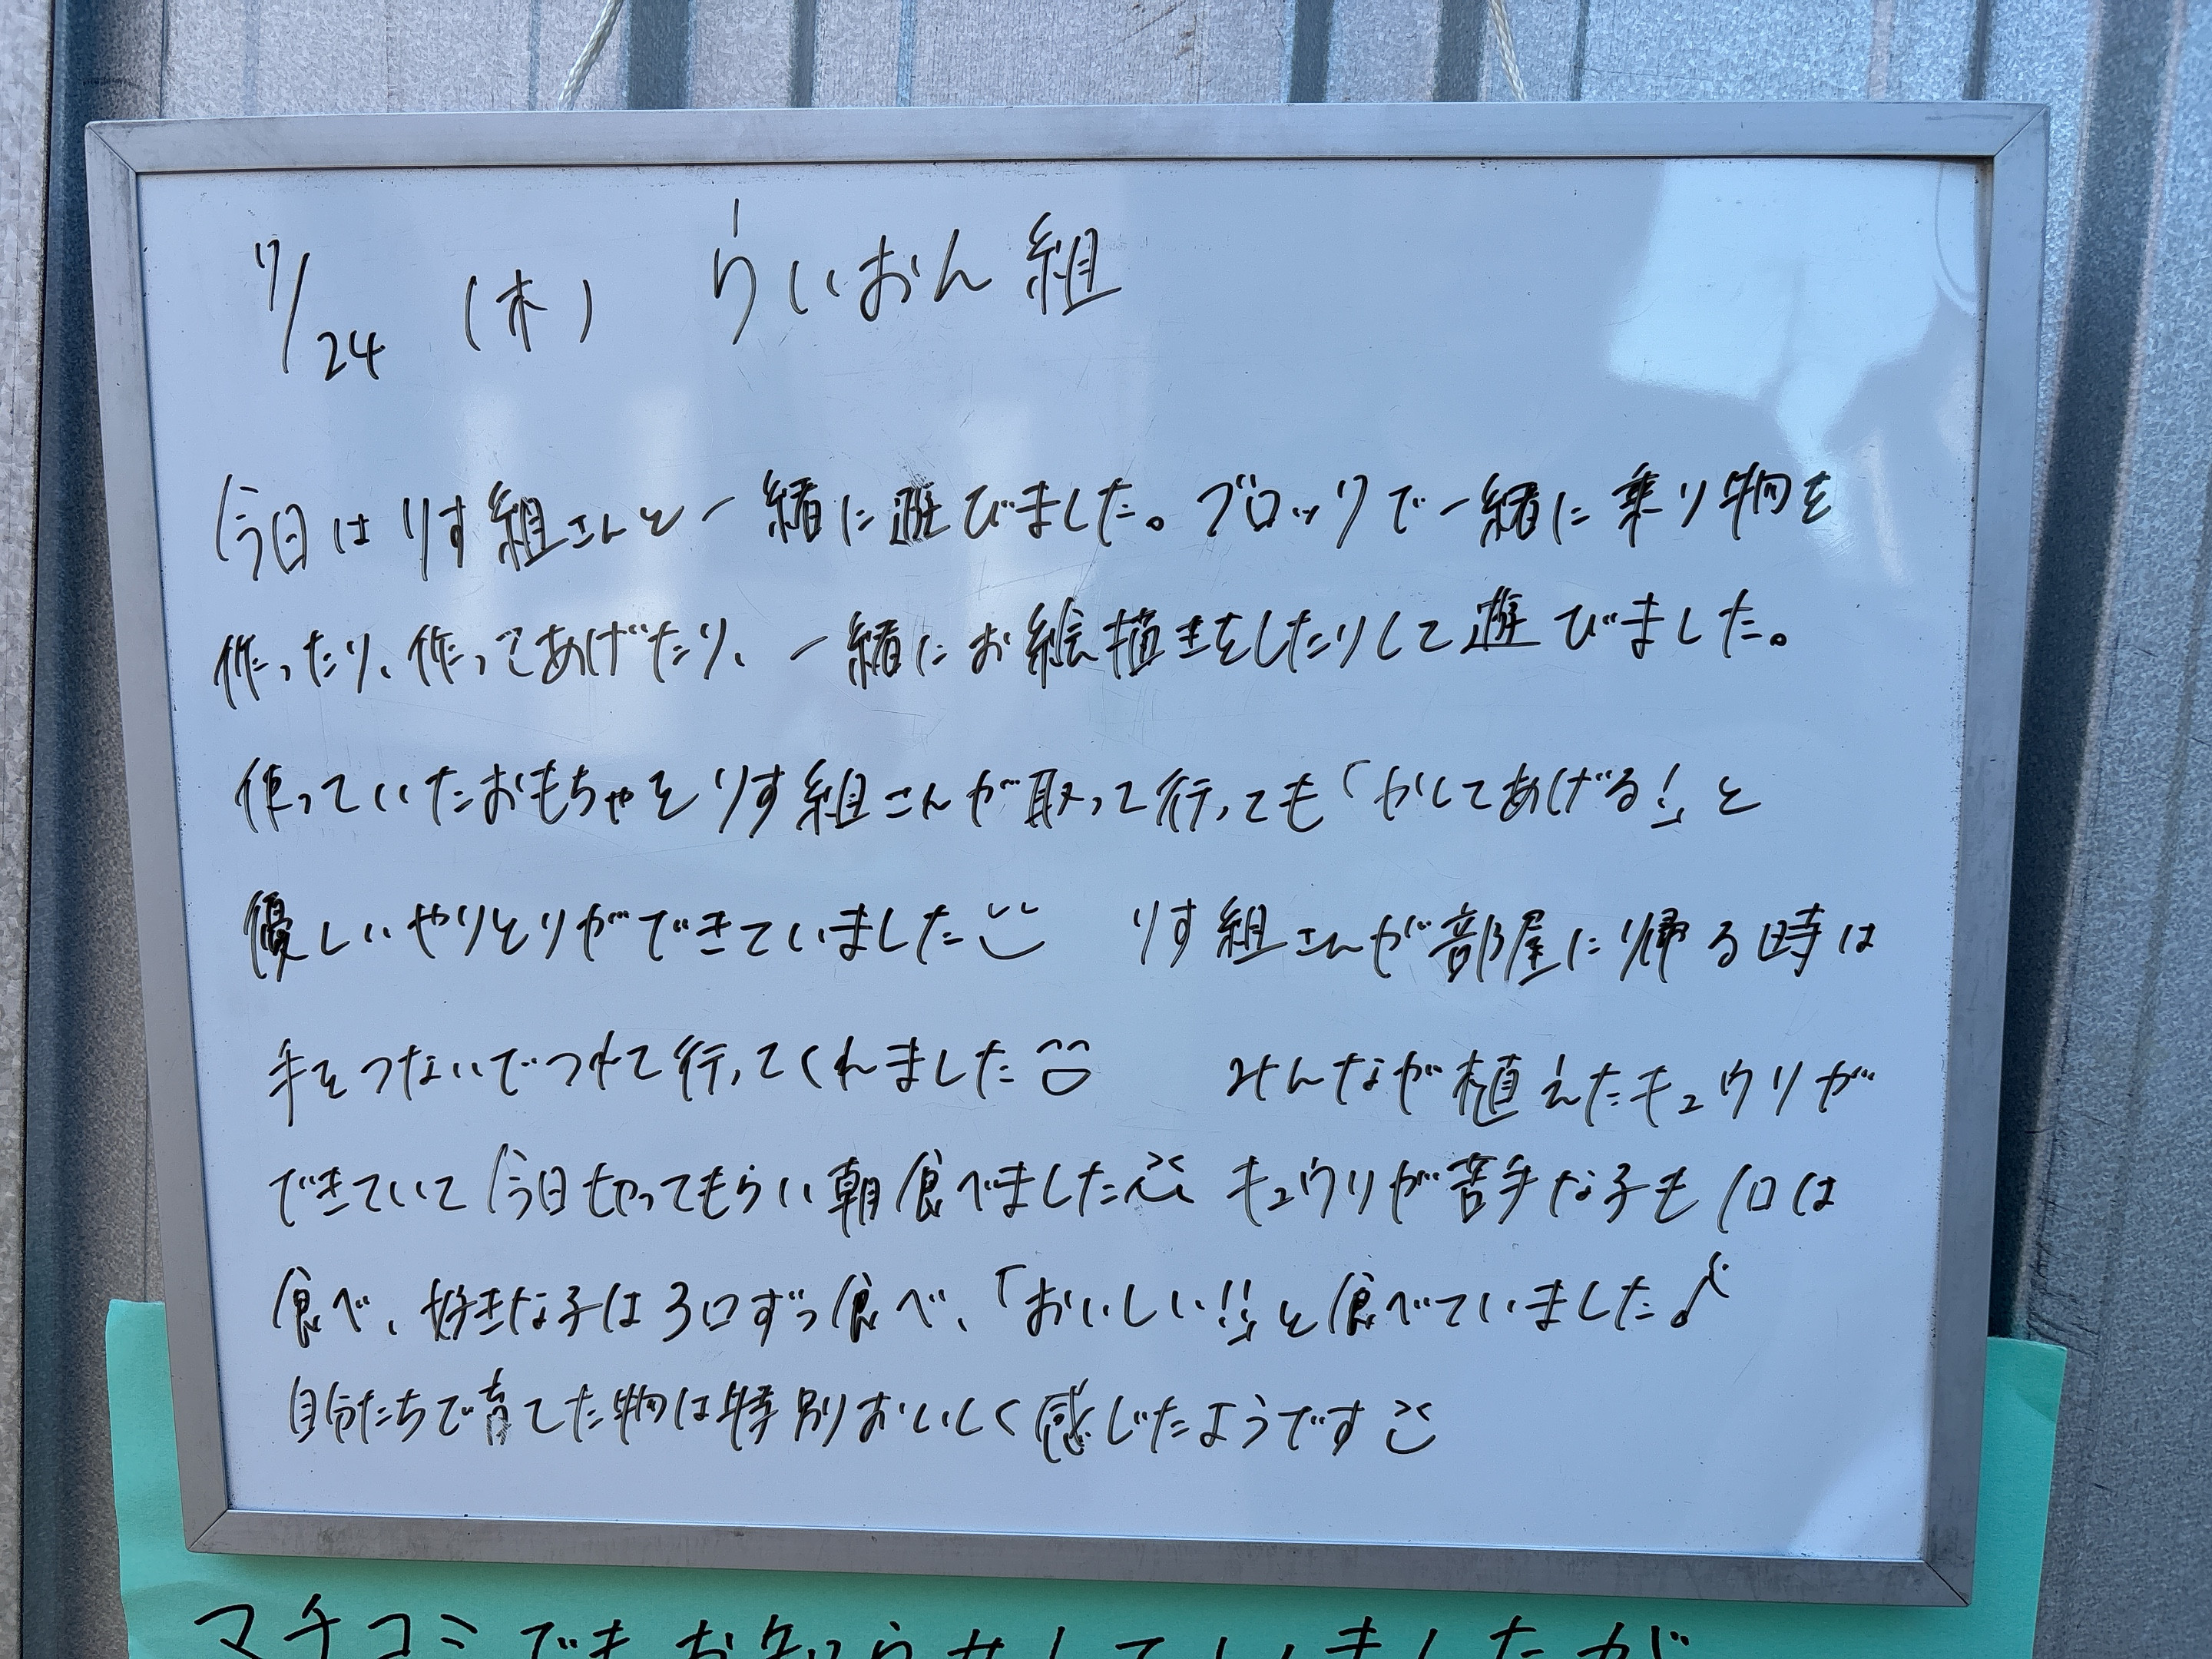 7/24 (木) らいおん組
今日はりす組さんと一緒に遊びました。ブロックで一緒に乗り物を
作ったり、作ってあげたり、一緒にお絵描きをしたりして遊びました。
使っていたおもちゃをりす組さんが取って行っても「かしてあげる!」と
優しいやりとりができていました りす組さんが部屋に帰る時は
手をつないでつれて行ってくれました みんなが植えたキュウリが
できていて今日切ってもらい朝食べました キュウリが苦手な子も1口は
食べ、好きな子は3口ずつ食べ、「おいしい!!」と食べていました♪
自分たちで育てた物は特別おいしく感じたようです
マチコミでもお知らせしていましたが